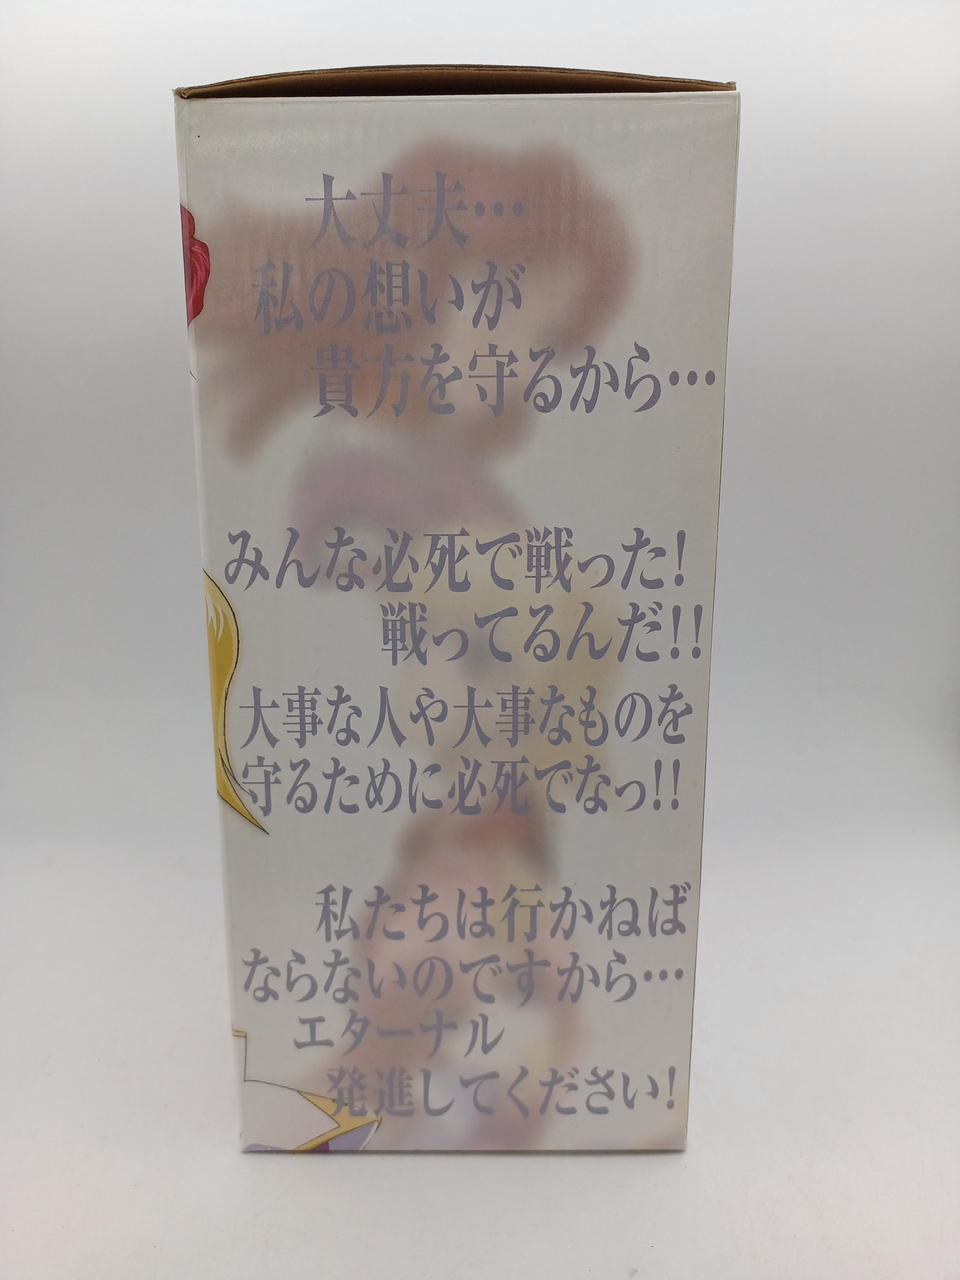 大丈夫…
私の想いが
貴方を守るから…
みんな必死で戦った!
戦ってるんだ!!
大事な人や大事なものを
守るために必死でなっ!!
私たちは行かねば
ならないのですから…
エターナル
発進してください!